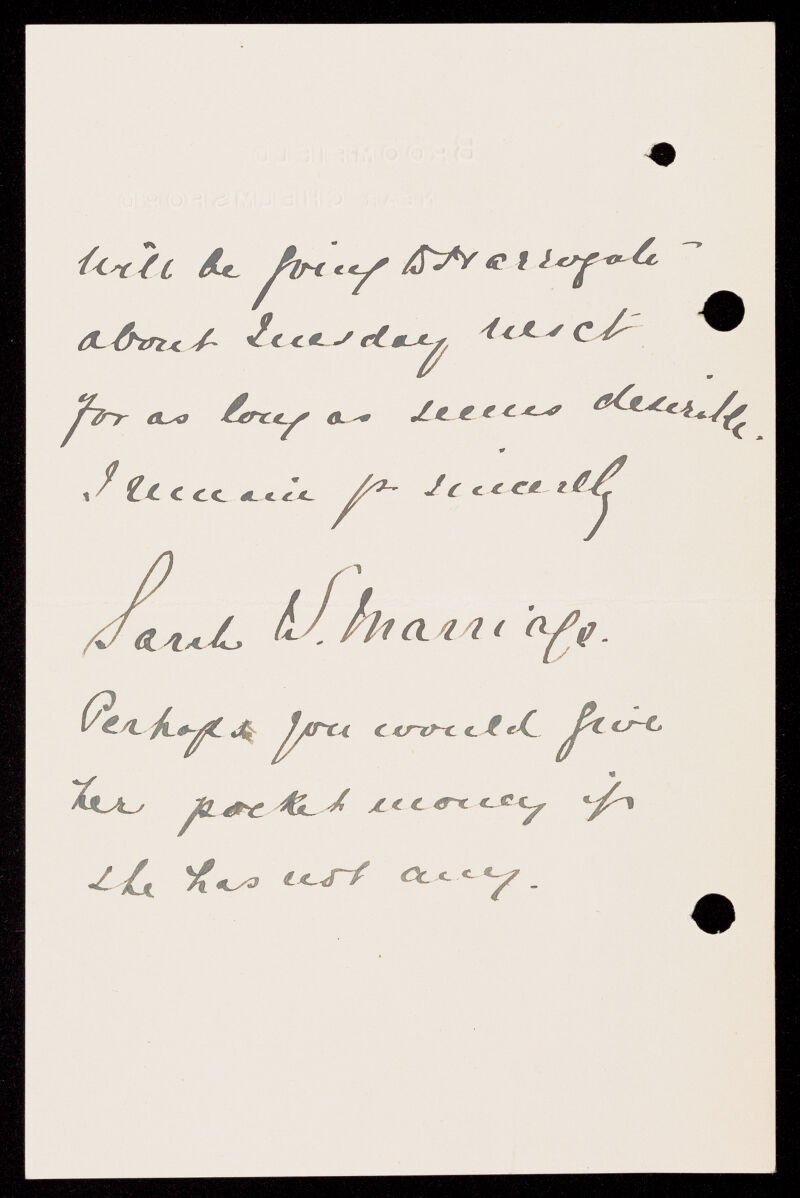 BROOMFIELD
NEAR CHELMSFORD
will be going to Harrogate -
about Tuesday next
for as long as seems desirable.
I remain yrs sincerely
Sarah W. Marriage.
Perhaps you would give
her pocket money if
she has not any.